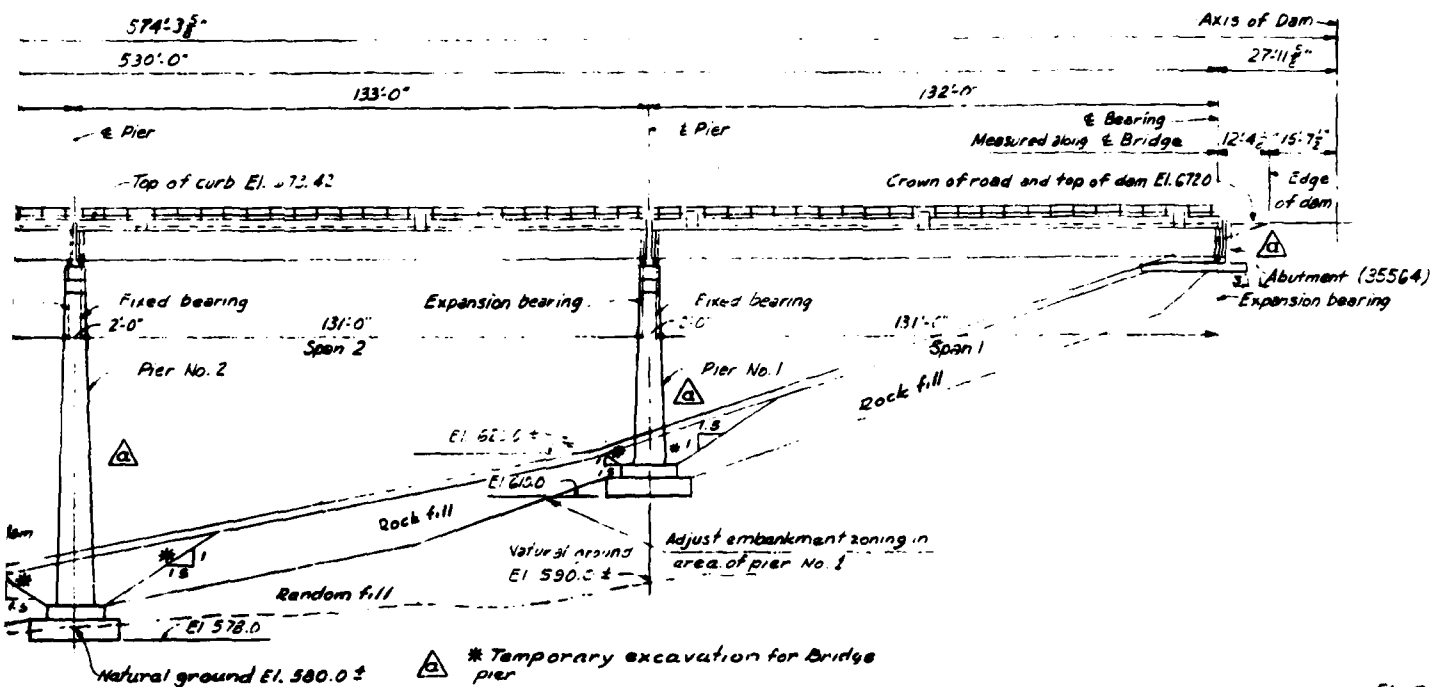 574'-3 5/8"
Axis of Dam
530'-0"
27'-11 5/8"
133'-0"
132'-0"
℄ Pier
℄ Pier
℄ Bearing
Measured along ℄ Bridge
15'-7½"
Top of curb El.
Crown of road and top of dam El. 672.0
Edge
of dam
a
Abutment (35564)
Expansion bearing
Fixed bearing
Expansion bearing
Fixed bearing
2'-0"
131'-0"
2'-0"
Span 2
Span 1
Pier No. 2
Pier No. 1
a
Rock fill
a
1.5
1
El.
*
*
1
1.5
El 610.0
Rock fill
Adjust embankment zoning in
area of pier No. 1
Natural ground
El 590.0 ±
*
1
1.5
*
1.5
Random fill
El 578.0
Natural ground El. 580.0 ±
a
* Temporary excavation for Bridge
pier